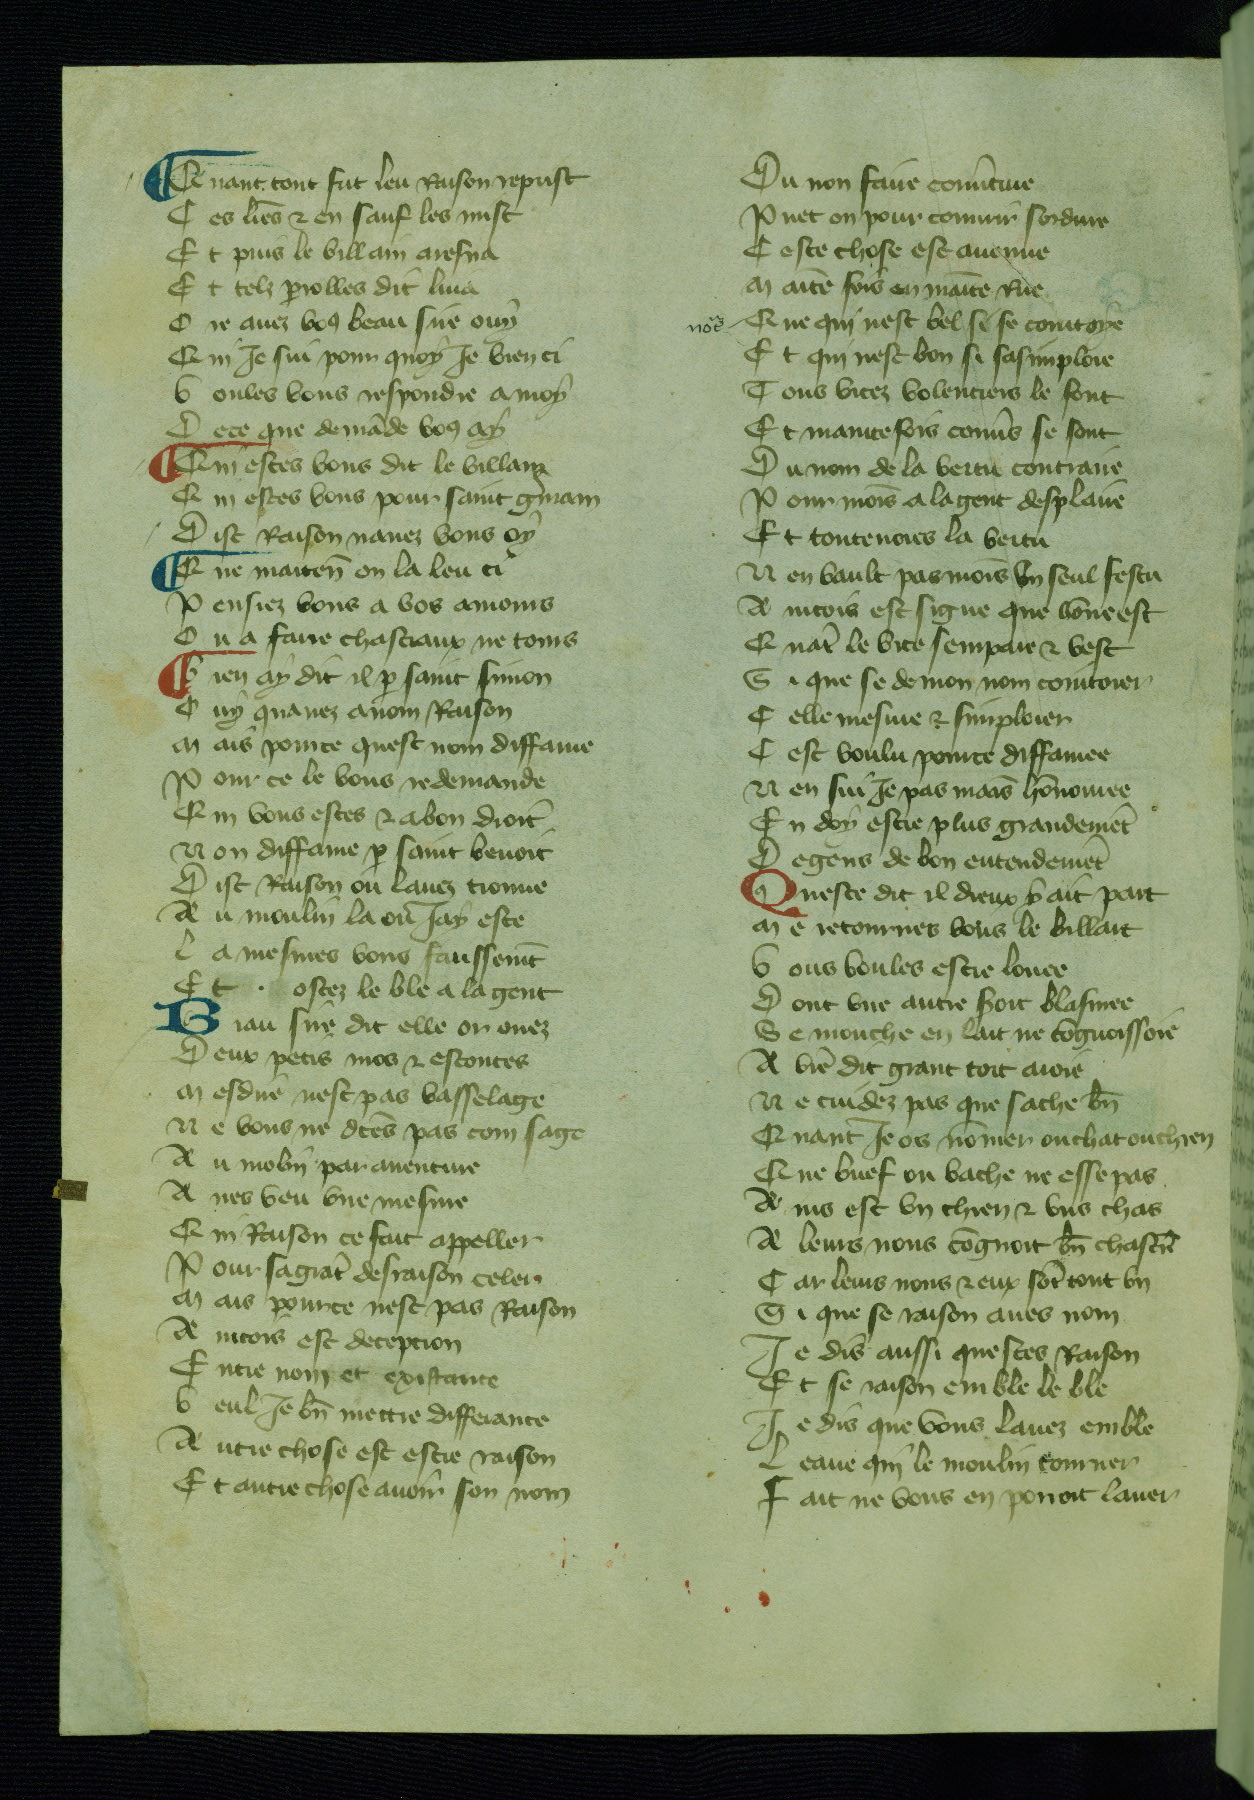 Quant tout fut leu Raison reprist
Ces lr̃es ⁊ en sauf les mist
Et puis le villain aresna
Et telz p̲arolles dit lui a
Ore avez vo⁹ beau sire ouy
Qui Je sui pour quoy Je vien ci
Voules vous respondre a moy
De ce que demãde vo⁹ ay
Qui estes vous dit le villain
Qui estes vous pour saint germain
Dist Raison navez vous oy
Que maiten̄ on la leu ci
Pensiez vous a vos amours
Ou a faire chasteaux ne tours
Bien ay dit il p̲ saint simon
Ouy quavez a nom Raison
Mais pource quest nom diffame
Pour ce le vous redemande
Qui vous estes ⁊ a bon droit
Non diffame p̲ saint benoit
Dist Raison ou lavez trouve
Au moulin la ou Jay este
La mesures vous faussemẽt
Et ostez le ble a la gent
Biau sire dit elle or ouez
Deux petis mos ⁊ escoutes
Mesdire nest pas vasselage
Ne vous ne dẽs pas com sage
Au molin par aventure
Aves veu une mesure
Qui Raison ce fait appeller
Pour sa grãt desraison celer
Mais pource nest pas Raison
Aincois est deception
Entre nom et existance
Veul Je bñ mettre differance
Autre chose est estre raison
Et autre chose avoir son nom
Du non faire couverture
Puet on pour couvrir sordure
Ceste chose est avenue
Maite fois en maite Rue
noᵗᵃ
Que qui nest bel si se cointoye
Et qui nest bon si sasimploie
Tous vicez volentiers le font
Et maintefois couvers se sont
Du nom de la vertu contraire
Pour mois a la gent desplaire
Et toutevoies la vertu
Nen vault pas mois vn seul festu
Aincois est signe que bõne est
Quãt le vice sempare ⁊ vest
Si que se de mon nom cointoier
Celle mesure ⁊ simploier
Cest voulu pource diffamee
Nen sui Je pas mais hõnouree
En doy estre plus grandemẽt
De gens de bon entendemẽt
Quest ce dit il dieux y ait part
Me retournes vous le billart
Vous voules estre louee
Dont vne autre seroit blasmee
Se mouche en lait ne cõgnoissoie
A briẽ dit grant tort aroie
Ne cuidez pas que sache bñ
Quant Je os nõmer ou chat ou chien
Que buef ou vache ne esse pas
Ains est vn chien ⁊ vns chas
A leurs nons cõgnoit bñ chascũ
Car leurs nons ⁊ eux sõt tout vn
Si que se raison aves nom
Je dis aussi questes Raison
Et se raison emble le ble
Je dis que vous lavez emble
Leaue qui le moulin tourner
Fait ne vous en porroit laver